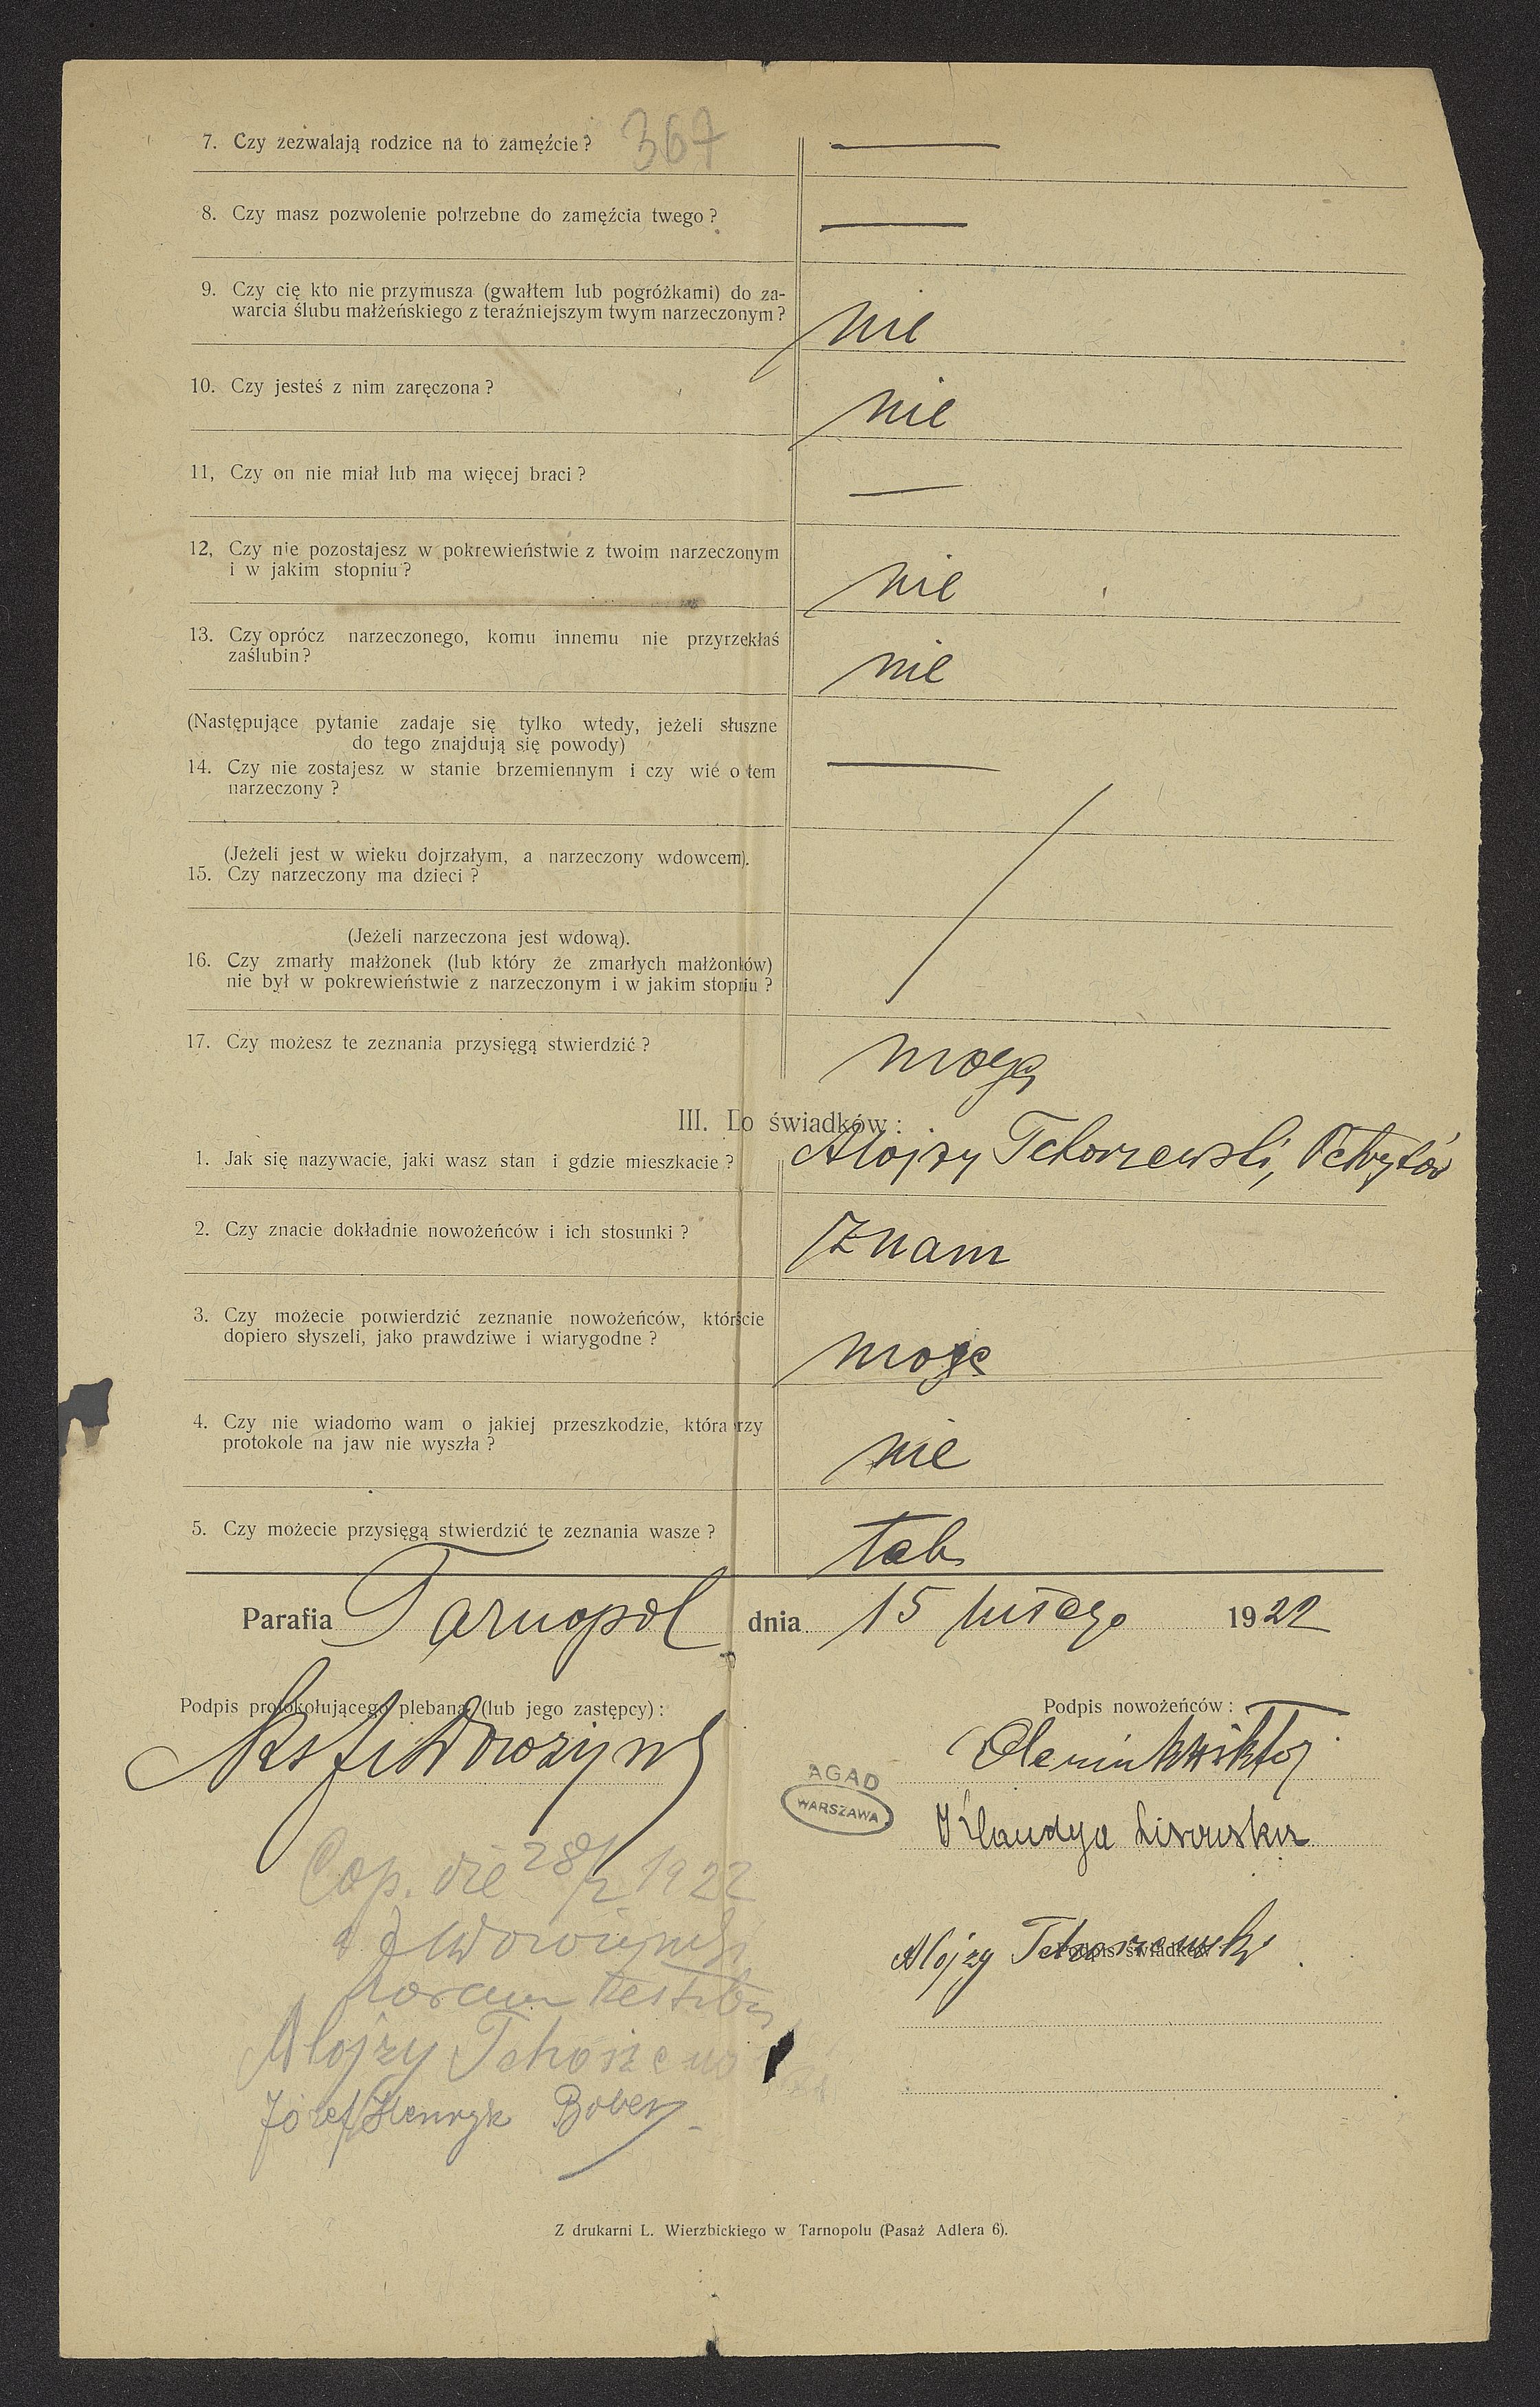 367
7. Czy zezwalają rodzice na to zamęźcie? —
8. Czy masz pozwolenie potrzebne do zamęźcia twego? —
9. Czy cię kto nie przymusza (gwałtem lub pogróżkami) do za-
warcia ślubu małżeńskiego z teraźniejszym twym narzeczonym? nie
10. Czy jesteś z nim zaręczona? nie
11, Czy on nie miał lub ma więcej braci? —
12, Czy nie pozostajesz w pokrewieństwie z twoim narzeczonym
i w jakim stopniu? nie
13. Czy oprócz narzeczonego, komu innemu nie przyrzekłaś
zaślubin? nie
(Następujące pytanie zadaje się tylko wtedy, jeżeli słuszne
do tego znajdują się powody)
14. Czy nie zostajesz w stanie brzemiennym i czy wie o tem —
narzeczony?
(Jeżeli jest w wieku dojrzałym, a narzeczony wdowcem).
15. Czy narzeczony ma dzieci?
(Jeżeli narzeczona jest wdową).
16. Czy zmarły małżonek (lub który ze zmarłych małżonków)
nie był w pokrewieństwie z narzeczonym i w jakim stopniu?
17. Czy możesz te zeznania przysięgą stwierdzić? mogę
III. Do świadków:
1. Jak się nazywacie, jaki wasz stan i gdzie mieszkacie? Alojzy Tchorzewski,
2. Czy znacie dokładnie nowożeńców i ich stosunki? Znam
3. Czy możecie potwierdzić zeznanie nowożeńców, którście
dopiero słyszeli, jako prawdziwe i wiarygodne? mogę
4. Czy nie wiadomo wam o jakiej przeszkodzie, która rzy
protokole na jaw nie wyszła? nie
5. Czy możecie przysięgą stwierdzić te zeznania wasze? tak
Parafia Tarnopol dnia 15 lutego 1922
Podpis protokołującego plebana (lub jego zastępcy):
Podpis nowożeńców:
Wiktor
AGAD
WARSZAWA
Klaudya Lisowska
Cop. die 28/2 1922
Podpis świadków
Alojzy Tchorzewski
coram testibus
Alojzy Tchorzewski
Józef Henryk Bober
Z drukarni L. Wierzbickiego w Tarnopolu (Pasaż Adlera 6).